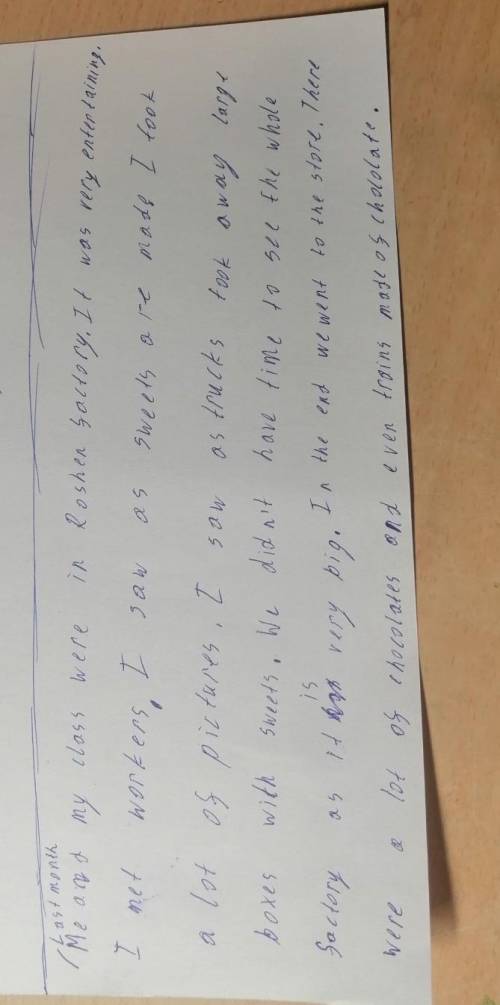 Last month
Me and my class were in Roshen factory. It was very entertaining.
I met workers. I saw as sweets are made I took
a lot of pictures. I saw as trucks took away large
boxes with sweets. We didn't have time to see the whole
factory as it is very big. In the end we went to the store. There
were a lot of chocolates and even trains made of chololate.